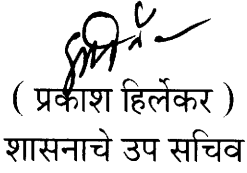 ( प्रकाश हिर्लेकर )
शासनाचे उप सचिव